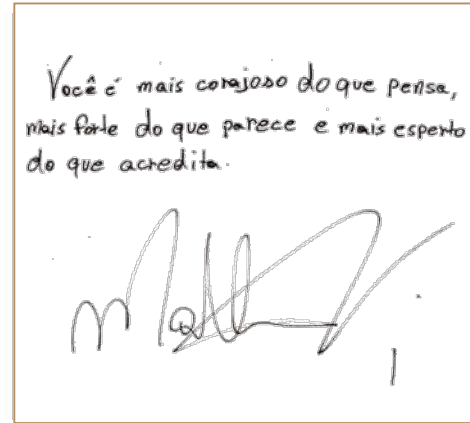 Você é mais corajoso do que pensa,
mais forte do que parece e mais esperto
do que acredita.